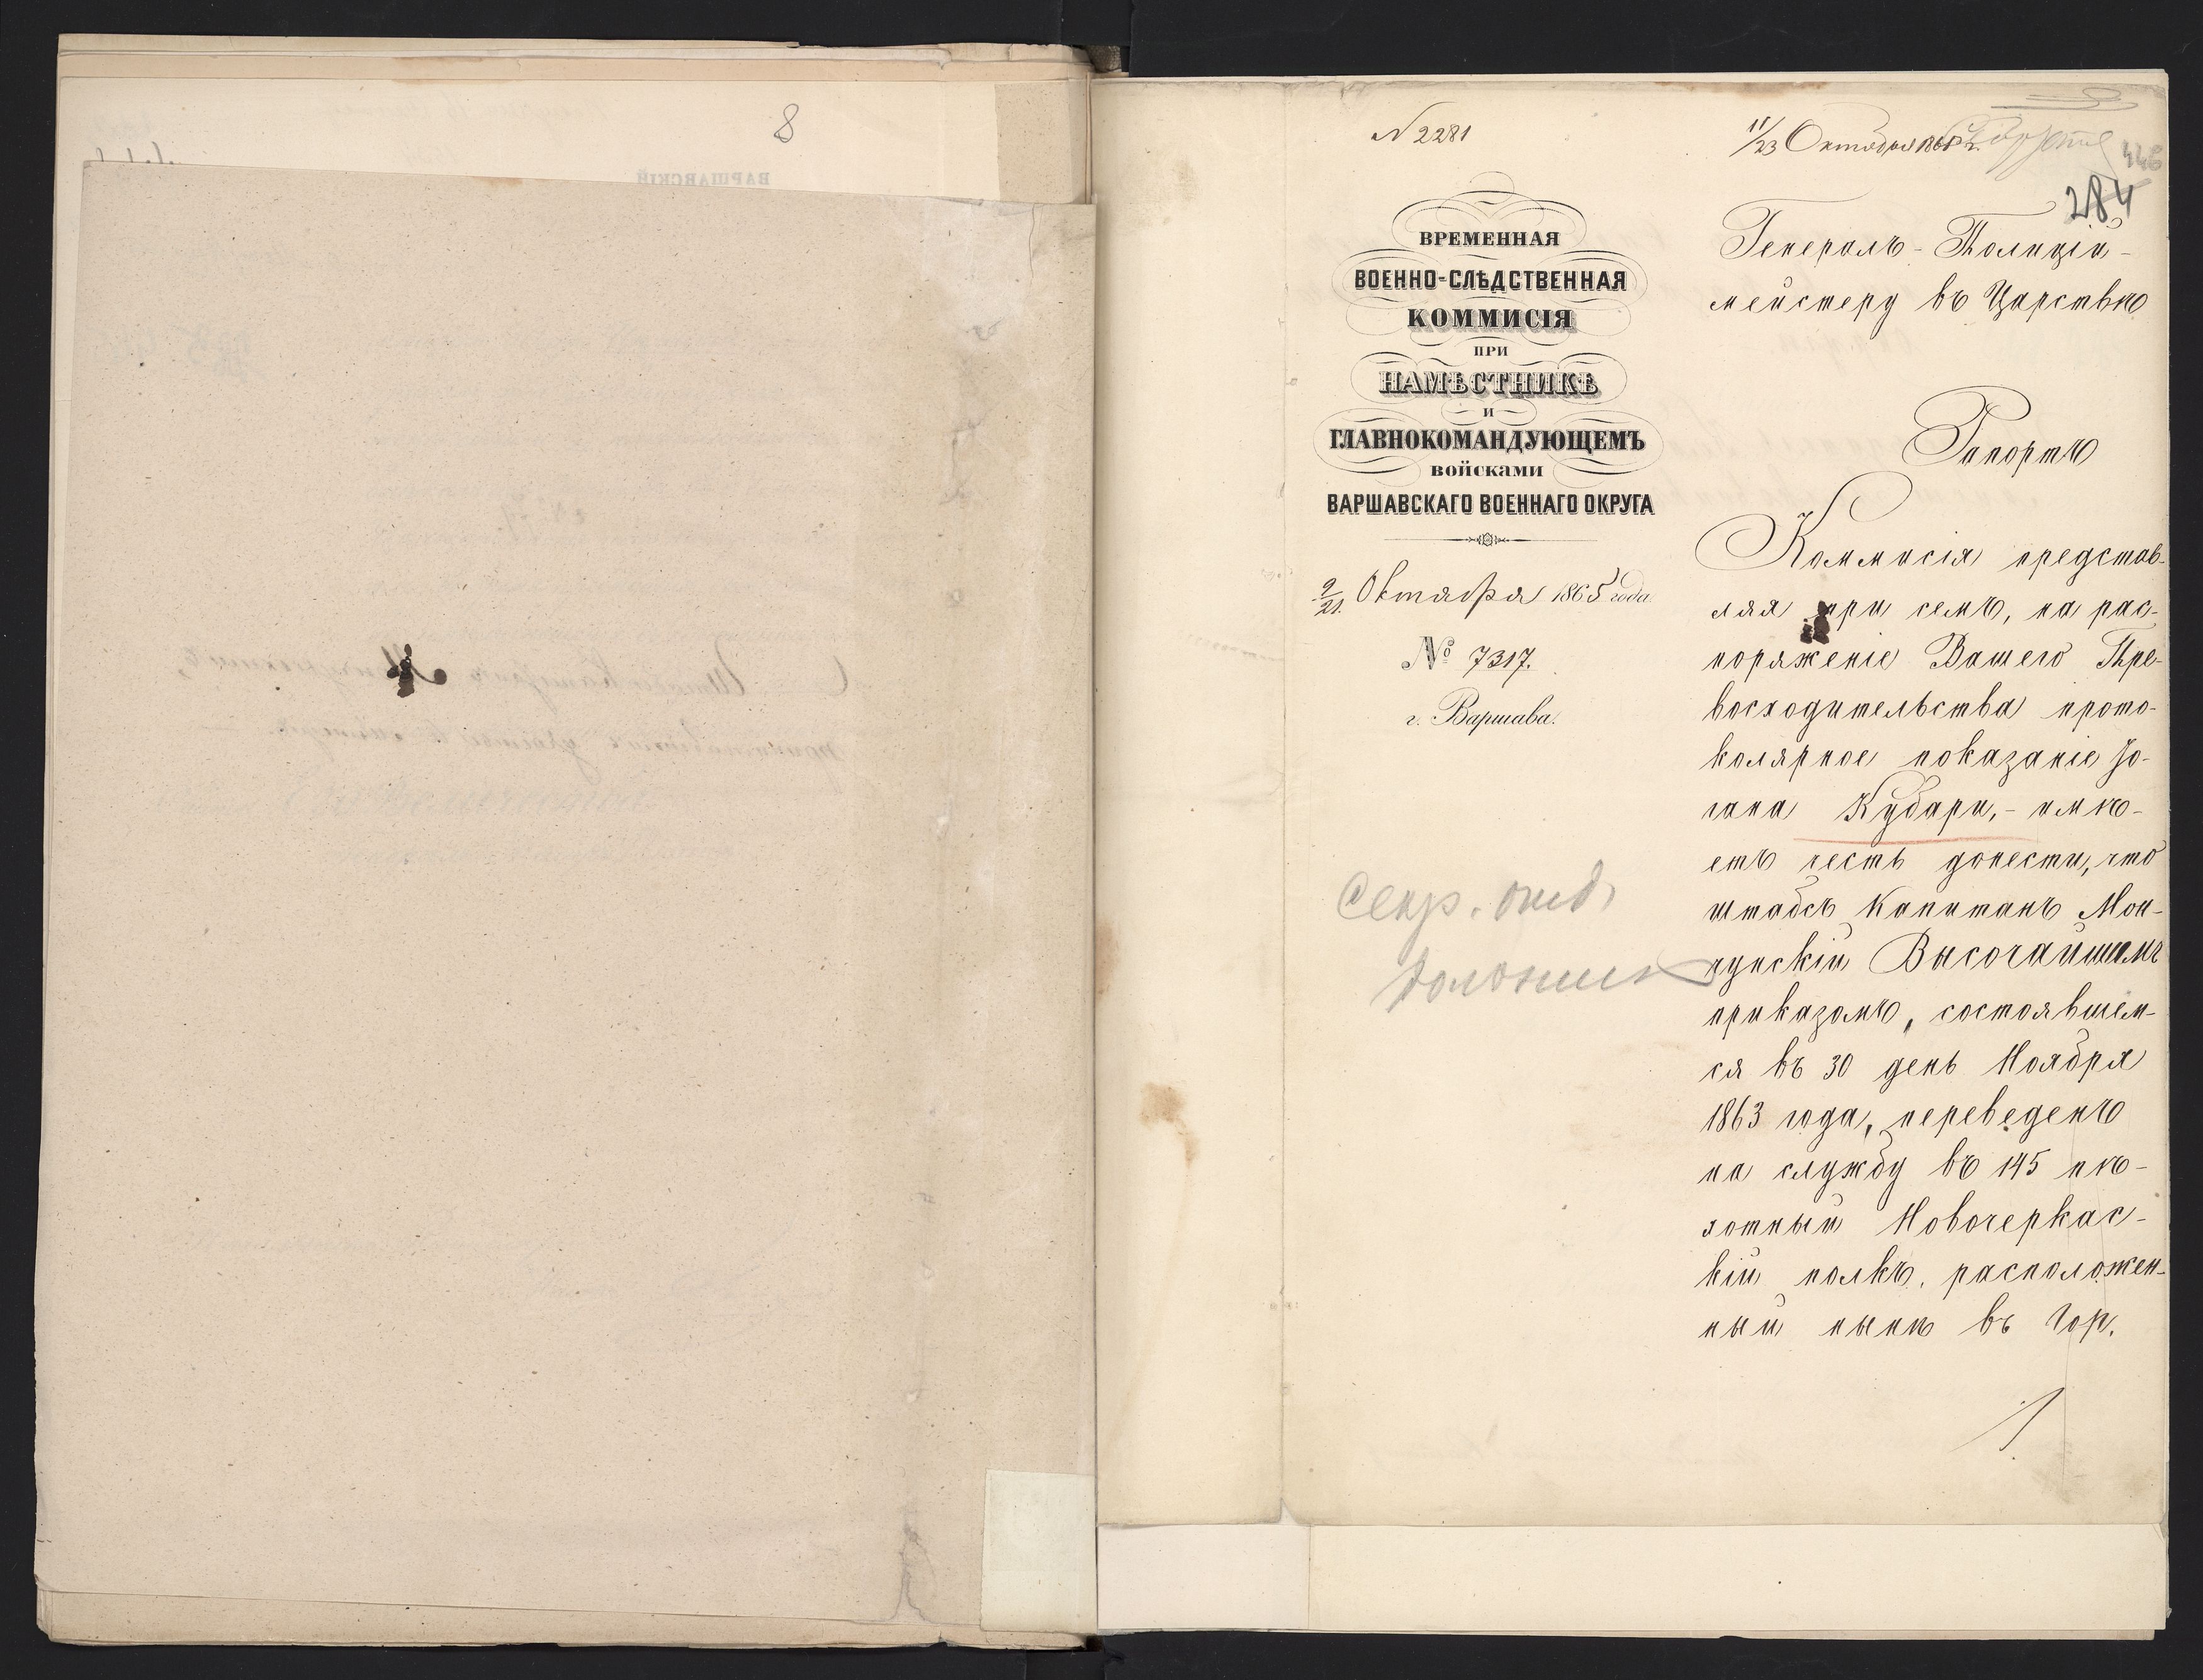 8
ВАРШАВСКІЙ
N 2281
11/23 Октября 1865 г.
446
284
ВРЕМЕННАЯ
ВОЕННО-СЛѢДСТВЕННАЯ
КОММИСІЯ
ПРИ
НАМѢСТНИКѢ
И
ГЛАВНОКОМАНДУЮЩЕМЪ
ВОЙСКАМИ
ВАРШАВСКАГО ВОЕННАГО ОКРУГА
9/21 Октября 1865 года
№ 7317.
г. Варшава.
Секр. отд.
Генералъ-Полицій-
мейстеру въ Царствѣ
Рапортъ
Коммисія представ-
ляя при семъ, на рас-
поряженіе Вашего Пре-
восходительства прото-
колярное показаніе Іо-
гана Кубари,- имѣ-
етъ честь донести, что
штабсъ Капитанъ Мон-
Высочайшемъ
приказомъ, состоявшем-
ся въ 30 день Ноября
1863 года, переведенъ
на службу въ 145 пѣ-
хотный Новочеркас-
кій полкъ, расположен-
ный нынѣ въ гор.